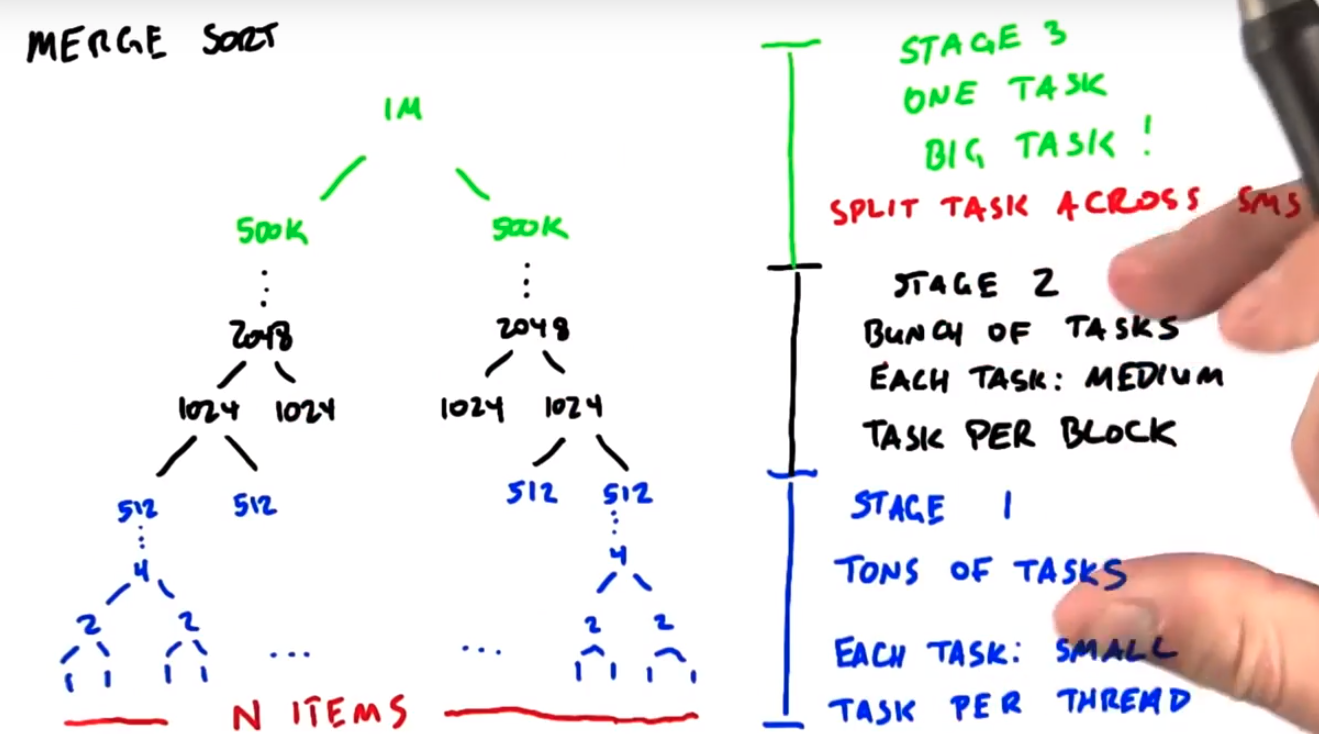 MERGE SORT
1M
500K 500K
2048 2048
1024 1024 1024 1024
512 512 512 512
4 4
2 2 ... ... 2 2
1 1 1 1 1 1 1 1
N ITEMS
STAGE 3
ONE TASK
BIG TASK!
SPLIT TASK ACROSS SMS
STAGE 2
BUNCH OF TASKS
EACH TASK: MEDIUM
TASK PER BLOCK
STAGE 1
TONS OF TASKS
EACH TASK: SMALL
TASK PER THREAD